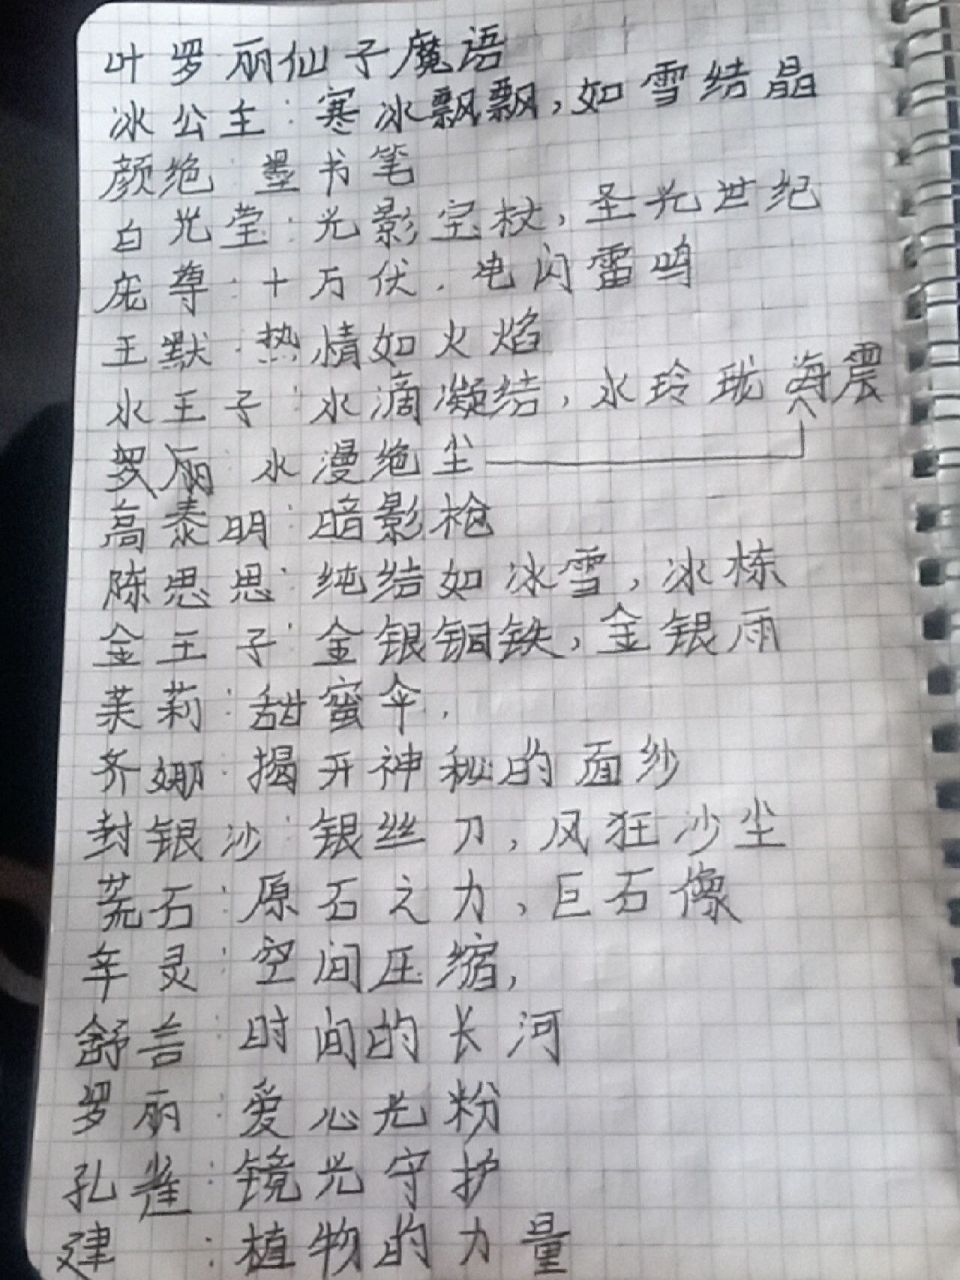 叶罗丽仙子魔语
冰公主:寒冰飘飘,如雪结晶
颜绝 墨书笔
白光莹:光影宝杖,圣光世纪
庞尊:十万伏,电闪雷鸣
王默:热情如火焰
水王子:水滴凝结,水玲珑海震
罗丽 水漫绝尘
高泰明:暗影枪
陈思思:纯结如冰雪,冰栋
金王子:金银铜铁,金银雨
茉莉:甜蜜伞.
齐娜:揭开神秘的面纱
封银沙:银丝刀,风狂沙尘
荒石:原石之力,巨石像
车灵:空间压缩,
舒言:时间的长河
罗丽:爱心光粉
孔雀:镜光守护
建 :植物的力量